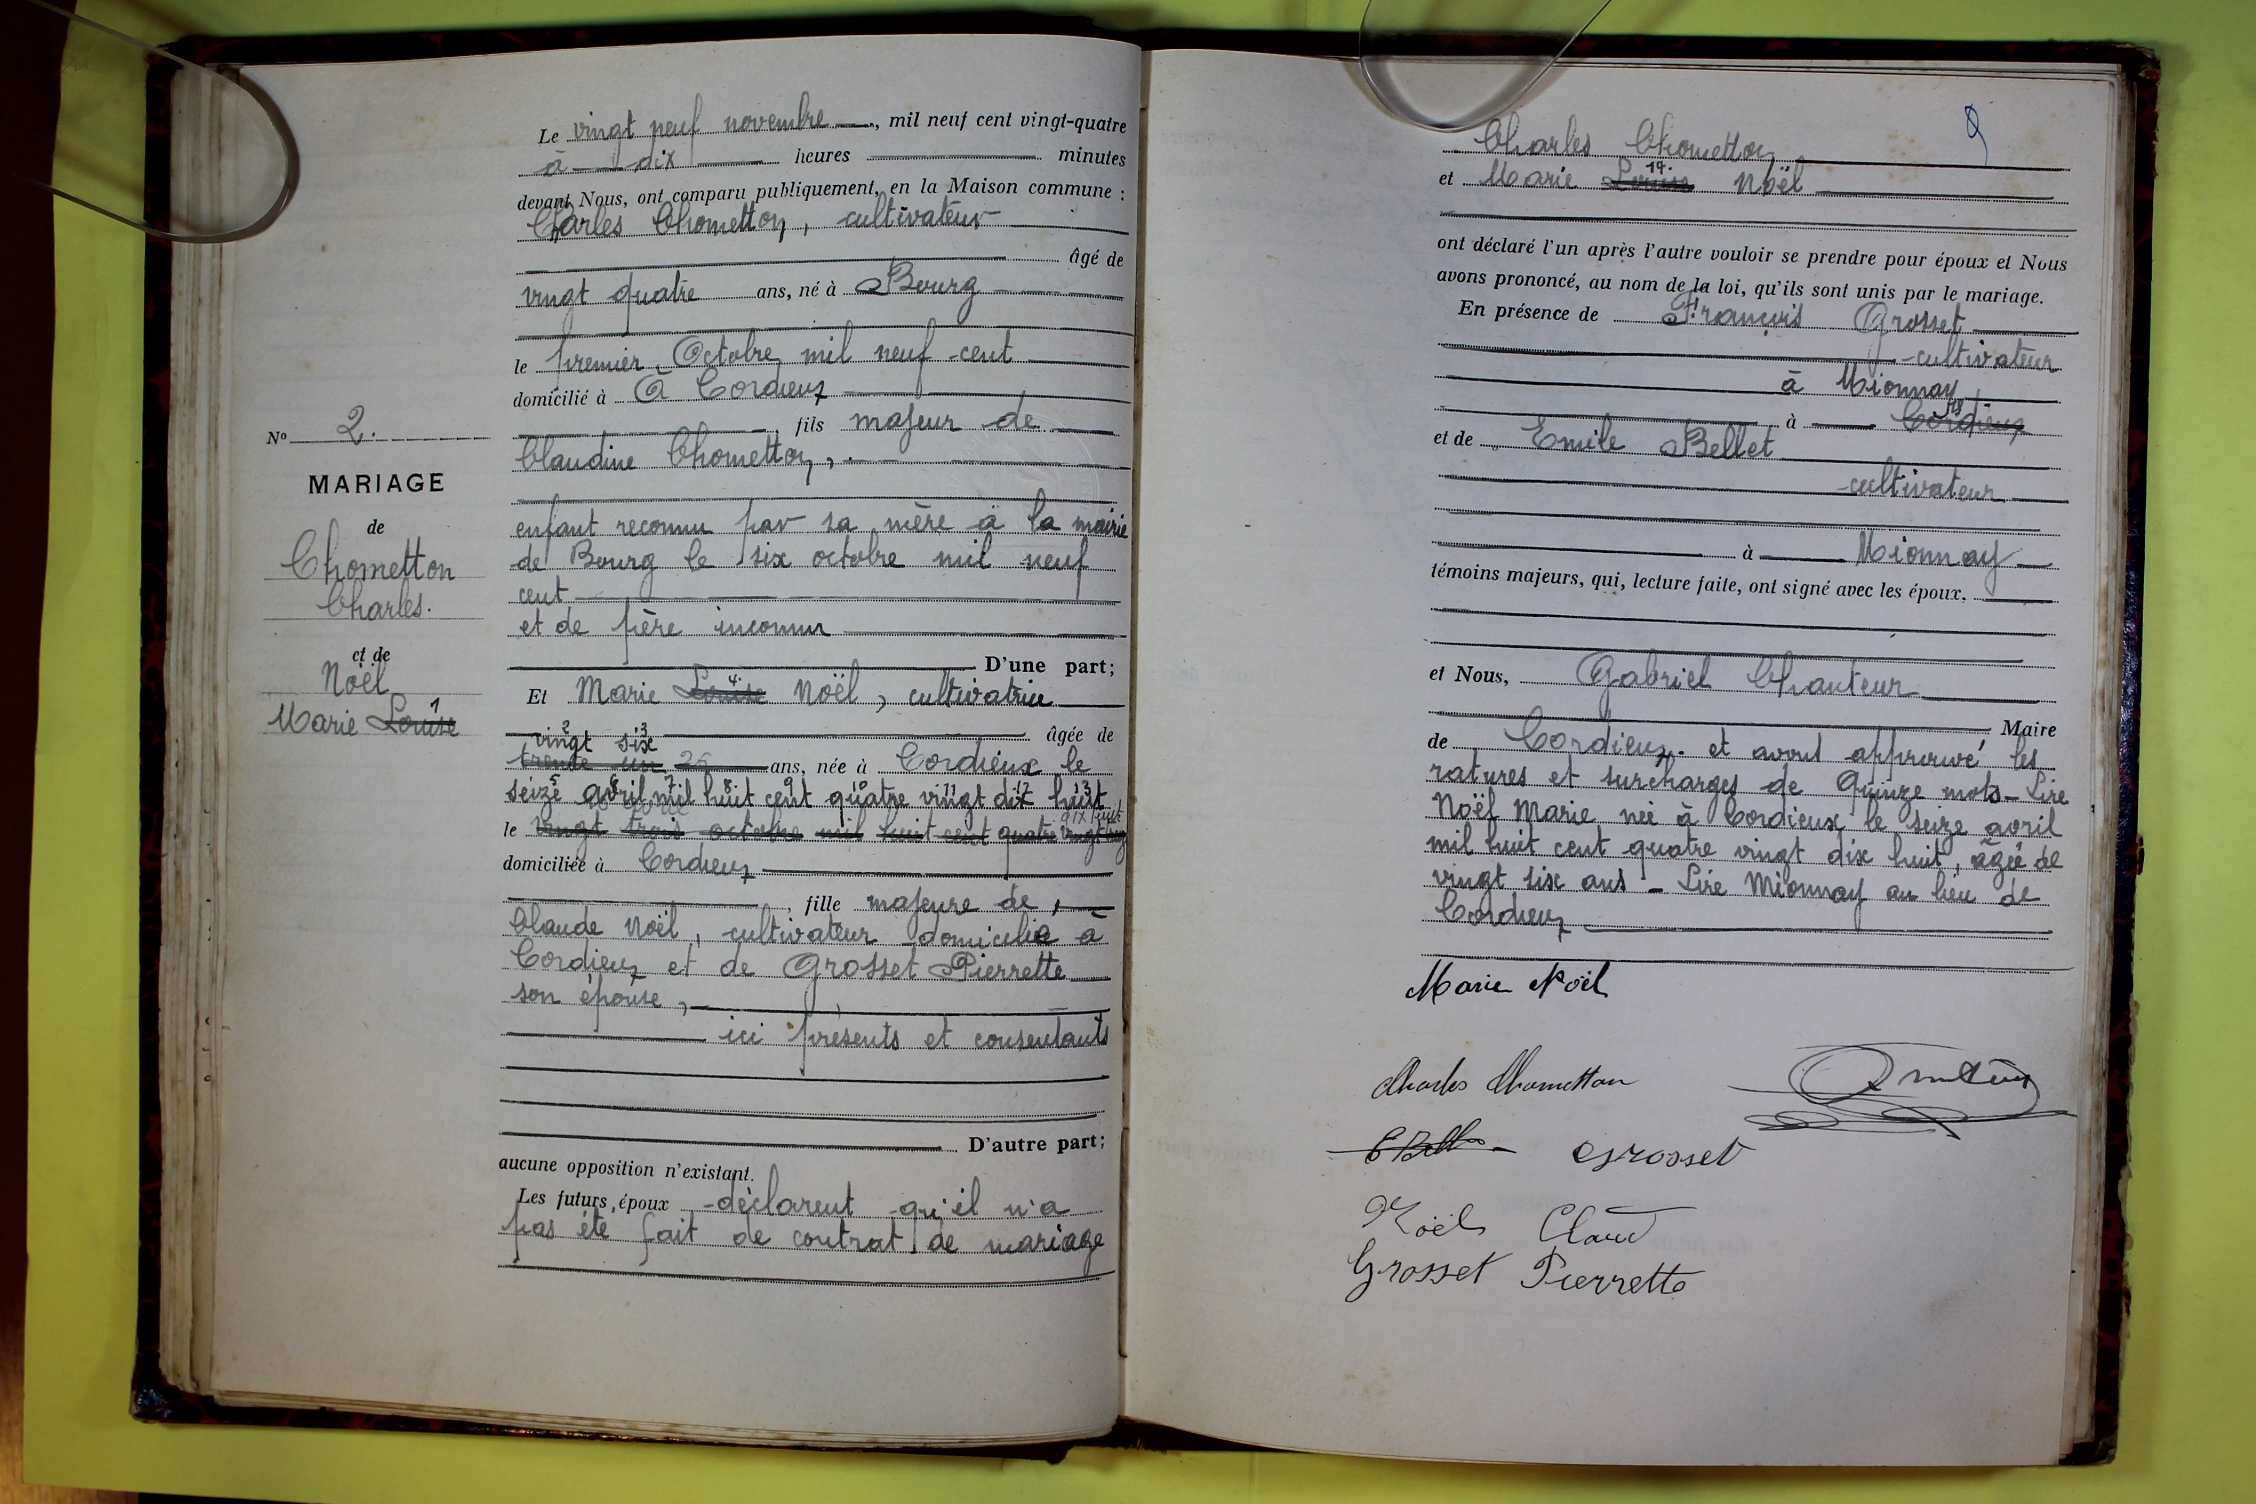 N° 2.
MARIAGE
de
Chometton
Charles.
et de
Noël
1
Marie Louise
Le vingt neuf novembre, mil neuf cent vingt-quatre
à dix heures minutes
devant Nous, ont comparu publiquement, en la Maison commune :
Charles Chometton, cultivateur
âgé de
vingt quatre ans, né à Bourg
le premier Octobre mil neuf cent
domicilié à à Cordieux
, fils majeur de
Claudine Chometton,
enfant reconnu par sa mère à la mairie
de Bourg le six octobre mil neuf
cent
et de père inconnu
D'une part;
4.
Et Marie Louise Noël, cultivatrice
âgée de
2 3
vingt six
trente un 26 ans, née à Cordieux le
5 6 7 8 9 10 11 12 13
seize avril mil huit cent quatre vingt dix huit
dix huit
le vingt trois octobre mil huit cent quatre vingt
domiciliée à Cordieux
, fille majeure de,
Claude Noël, cultivateur domicilié à
Cordieux et de Grosset Pierrette
son épouse,
ici présents et consentants
D'autre part;
aucune opposition n'existant.
Les futurs époux déclarent qu'il n'a
pas été fait de contrat de mariage
9
Charles Chometton
14.
et Marie Louise Noël
ont déclaré l'un après l'autre vouloir se prendre pour époux et Nous
avons prononcé, au nom de la loi, qu'ils sont unis par le mariage.
En présence de François Grosset
cultivateur
à Mionnay
15
à Cordieux
et de Emile Bellet
cultivateur
à Mionnay
témoins majeurs, qui, lecture faite, ont signé avec les époux.
et Nous, Gabriel Chanteur
Maire
de Cordieux. et avons approuvé les
ratures et surcharges de Quinze mots - Lire
Noël Marie née à Cordieux le seize avril
mil huit cent quatre vingt dix huit, âgée de
vingt six ans - Lire Mionnay au lieu de
Cordieux
Marie Noël
Charles Chometton
Grosset
Noël Claud
Grosset Pierrette